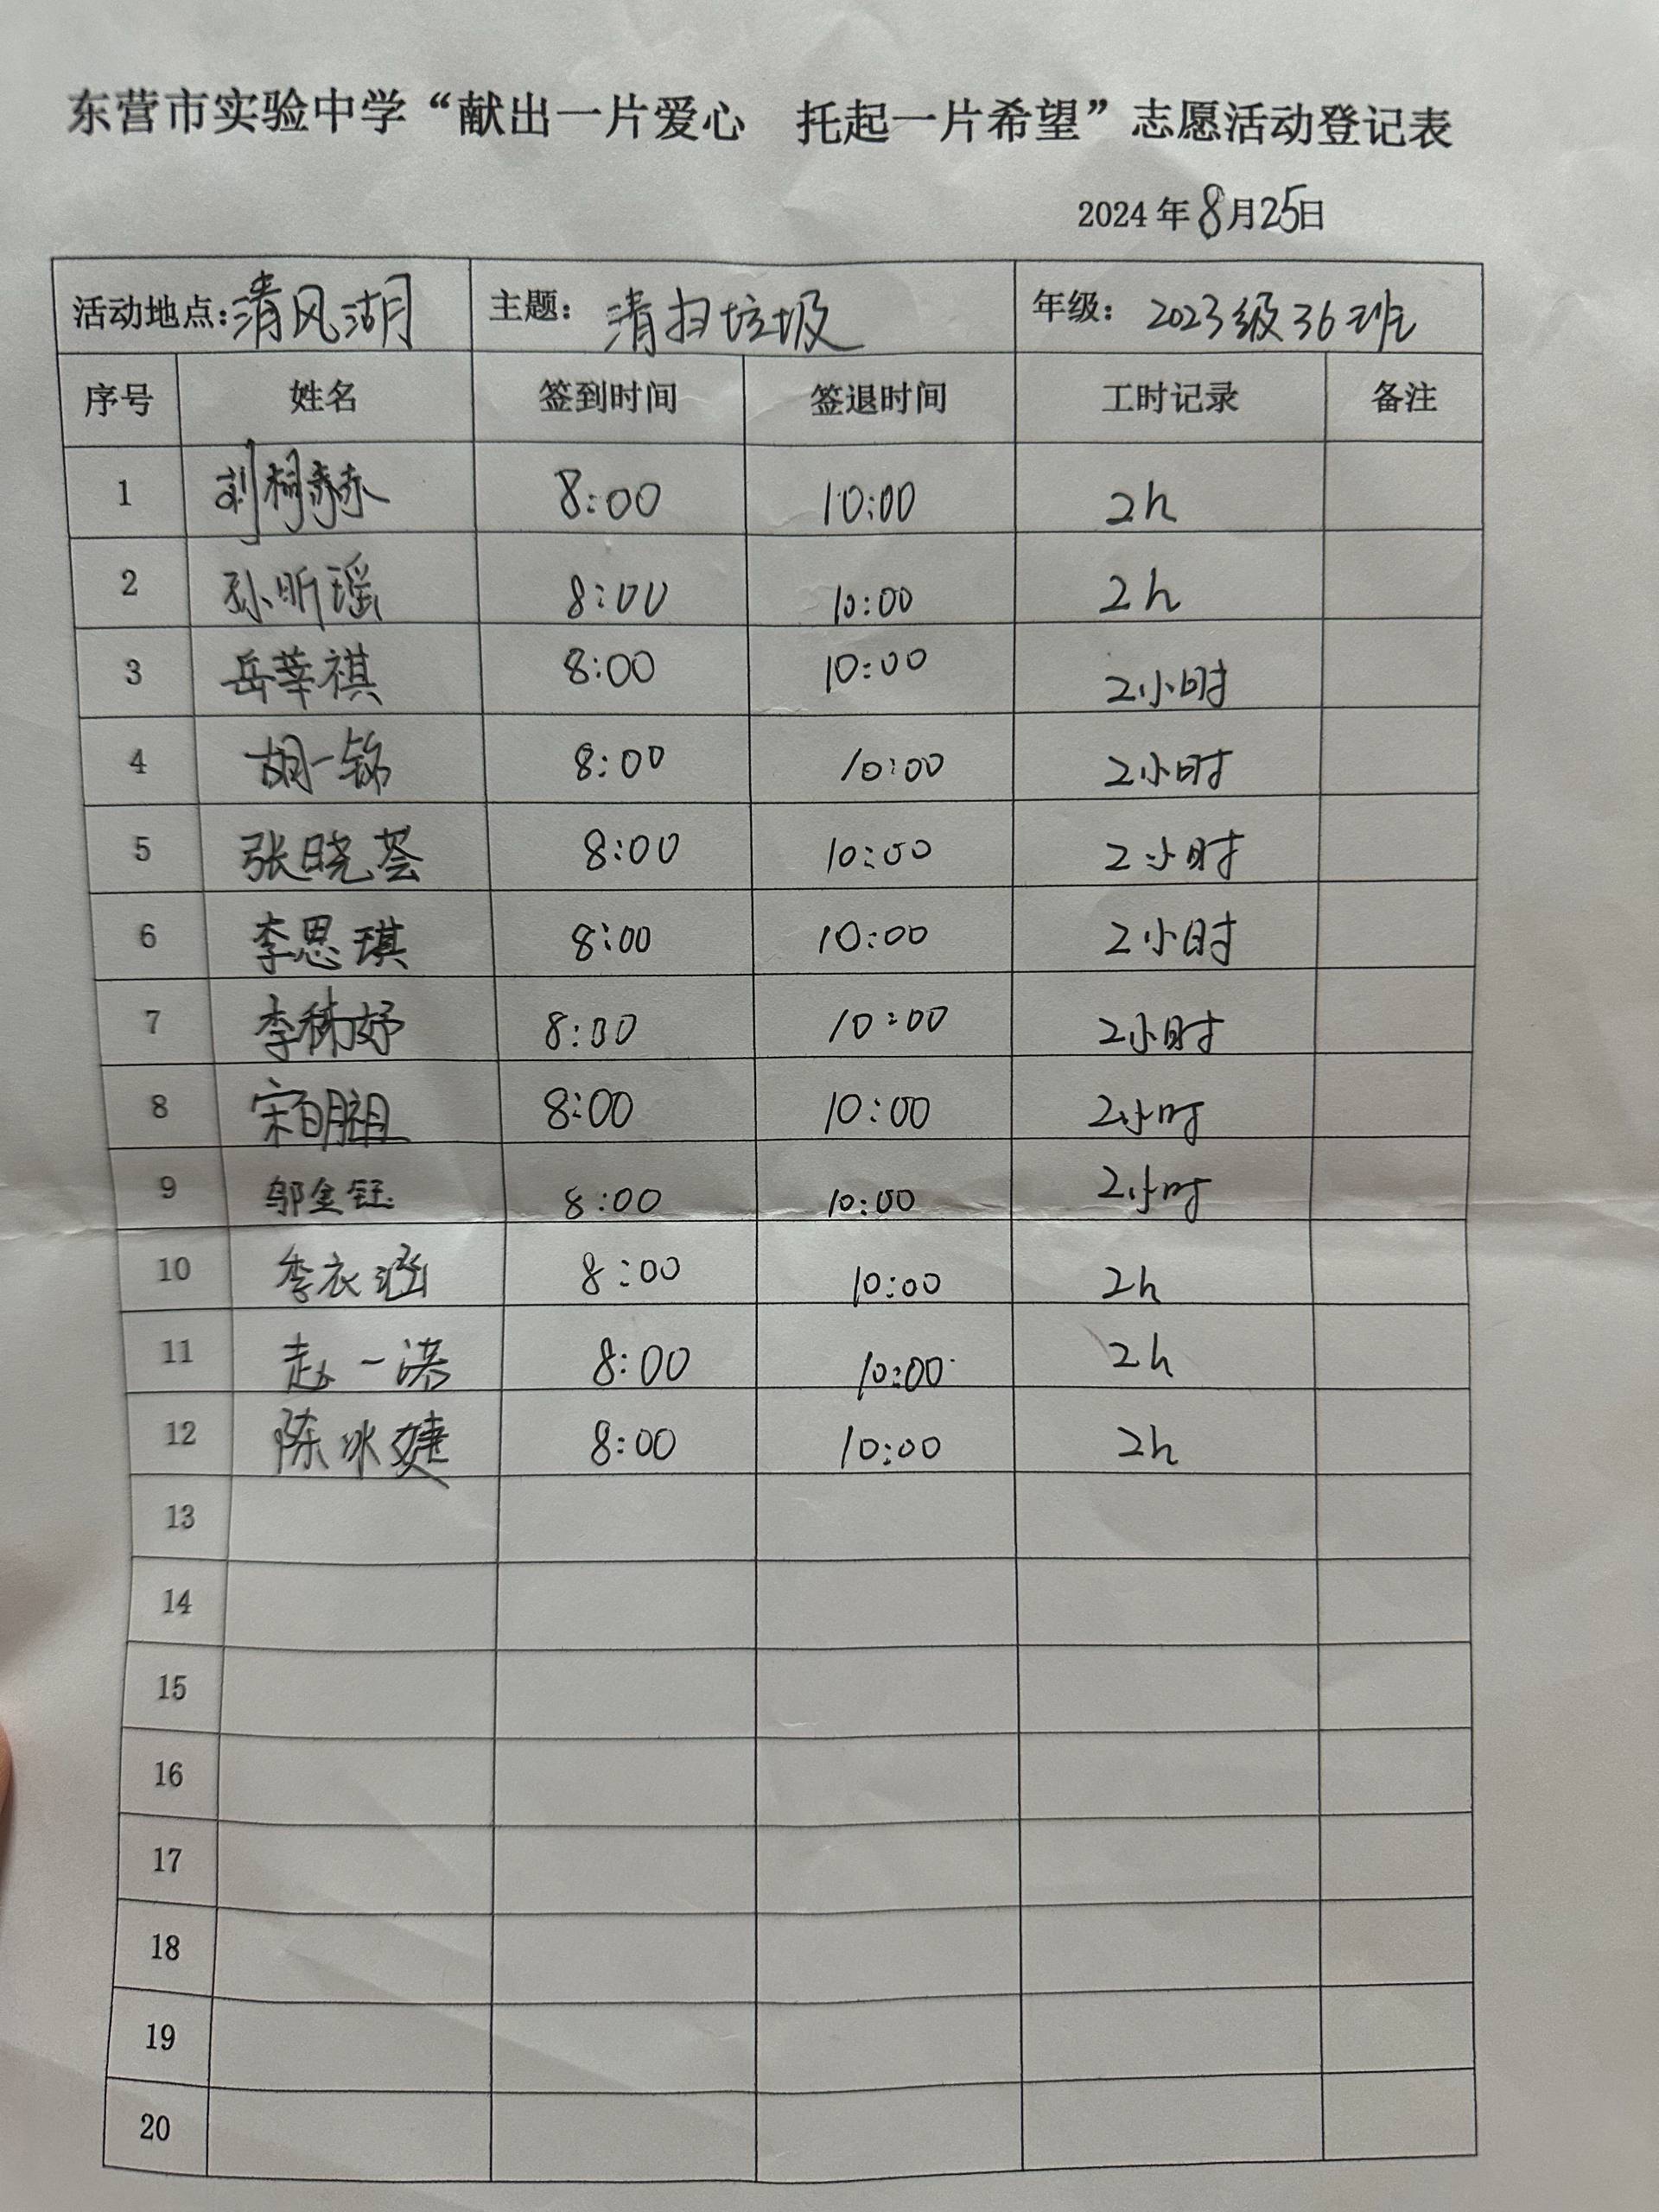 东营市实验中学“献出一片爱心 托起一片希望”志愿活动登记表
2024年8月25日
活动地点:清风湖 主题: 清扫垃圾 年级: 2023级36班
序号 姓名 签到时间 签退时间 工时记录 备注
1 刘柯赫 8:00 10:00 2h
2 孙昕瑶 8:00 10:00 2h
3 岳莘祺 8:00 10:00 2小时
4 胡一铭 8:00 10:00 2小时
5 张晓荟 8:00 10:00 2小时
6 李思琪 8:00 10:00 2小时
7 李 妤 8:00 10:00 2小时
8 宋明祖 8:00 10:00 2小时
9 邬金钰 8:00 10:00 2小时
10 李衣涵 8:00 10:00 2h
11 赵一洪 8:00 10:00 2h
12 陈冰婕 8:00 10:00 2h
13
14
15
16
17
18
19
20